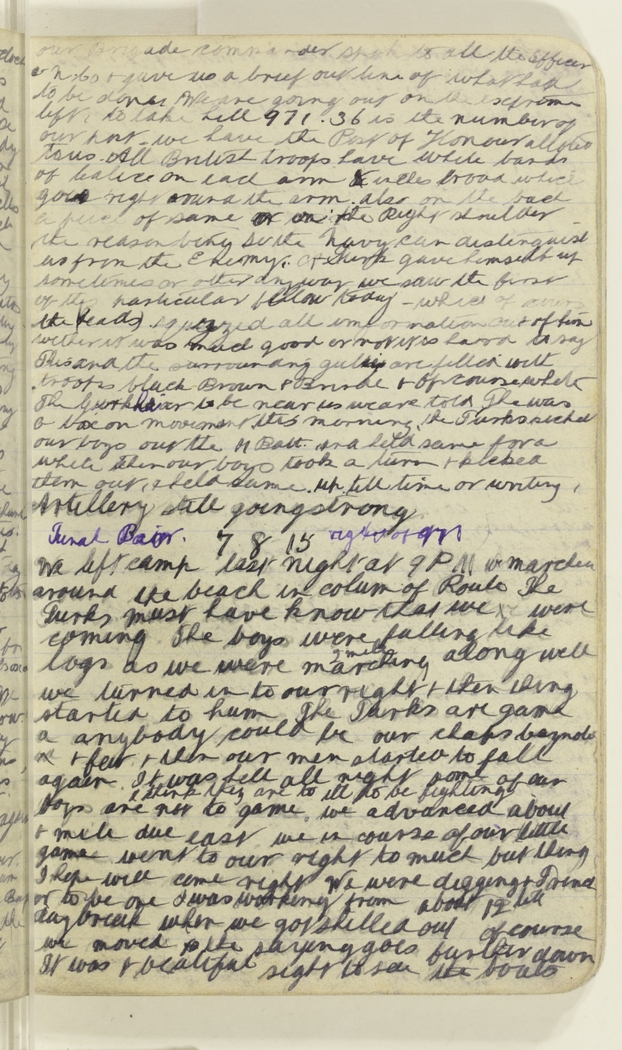 our Brigade commander spoke to all the officer
& ncos & gave us a brief out line of what had
to be done. We are going out on the extreme
left, to take hill 971. 36 is the number of
our post. we have the Post of Honour allotted
to us. All British troops have white bands
of calico on each arm 8 inches broad which
goes right around the arm. also on the back
a piece of same on the Right shoulder
the reason being so the Navy can distinguish
us from the Enemy. A Turk gave himself up
sometimes or other anyway we saw the first
of this particular fellow today - which of course
the heads all information out of him
wether it was much good or not it is hard to say
This and the surrounding gullies are filled with
troops black Brown & & Of course white
The Gurkhas to be near us we are told. There was
a box on movement this morning, the Turks kicked
our boys out the Batt and held same for a
while then our boys took a turn & kicked
them out, & held same up till time of writing,
Artillery still going strong
7 8 15 right of 971
We left camp last night at 9 PM we marched
around the beach in colum of Route The
Turks must have know that we were
coming. The boys were falling like
logs as we were marching along well
2 miles
we turned in to our right & then thing
started to hum. The Turks are game
a anybody could be our chaps bayonets
& few & then our men started to fall
again. It was hell all night some of our
I think they are to ill to be fighting
boys are not to game, we advanced about
& mile due east we in course of our little
game went to our right to much but thing
I hope will come right We were digging & Trench
or to be one I was working from about 12 till
daybreak when we got shelled out of course
we moved as the saying goes further down
It was & beatiful sight to see the boats